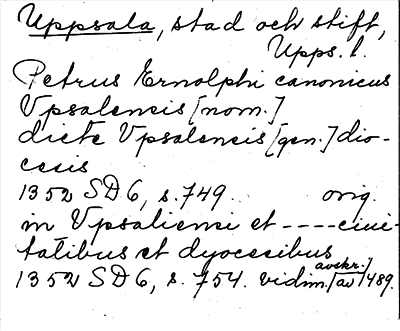 Uppsala, stad och stift,
Upps. l.
Petrus Ernolphi canonicus
Vpsalensis [nom.]
dicte Vpsalensis [gen.] dio-
cesis
1352 SD 6, s. 749. orig.
in Vpsaliensi et ---- ciui-
tatibus et dyocesibus
1352 SD 6, s. 754. vidim. [av avskr.] 1489.